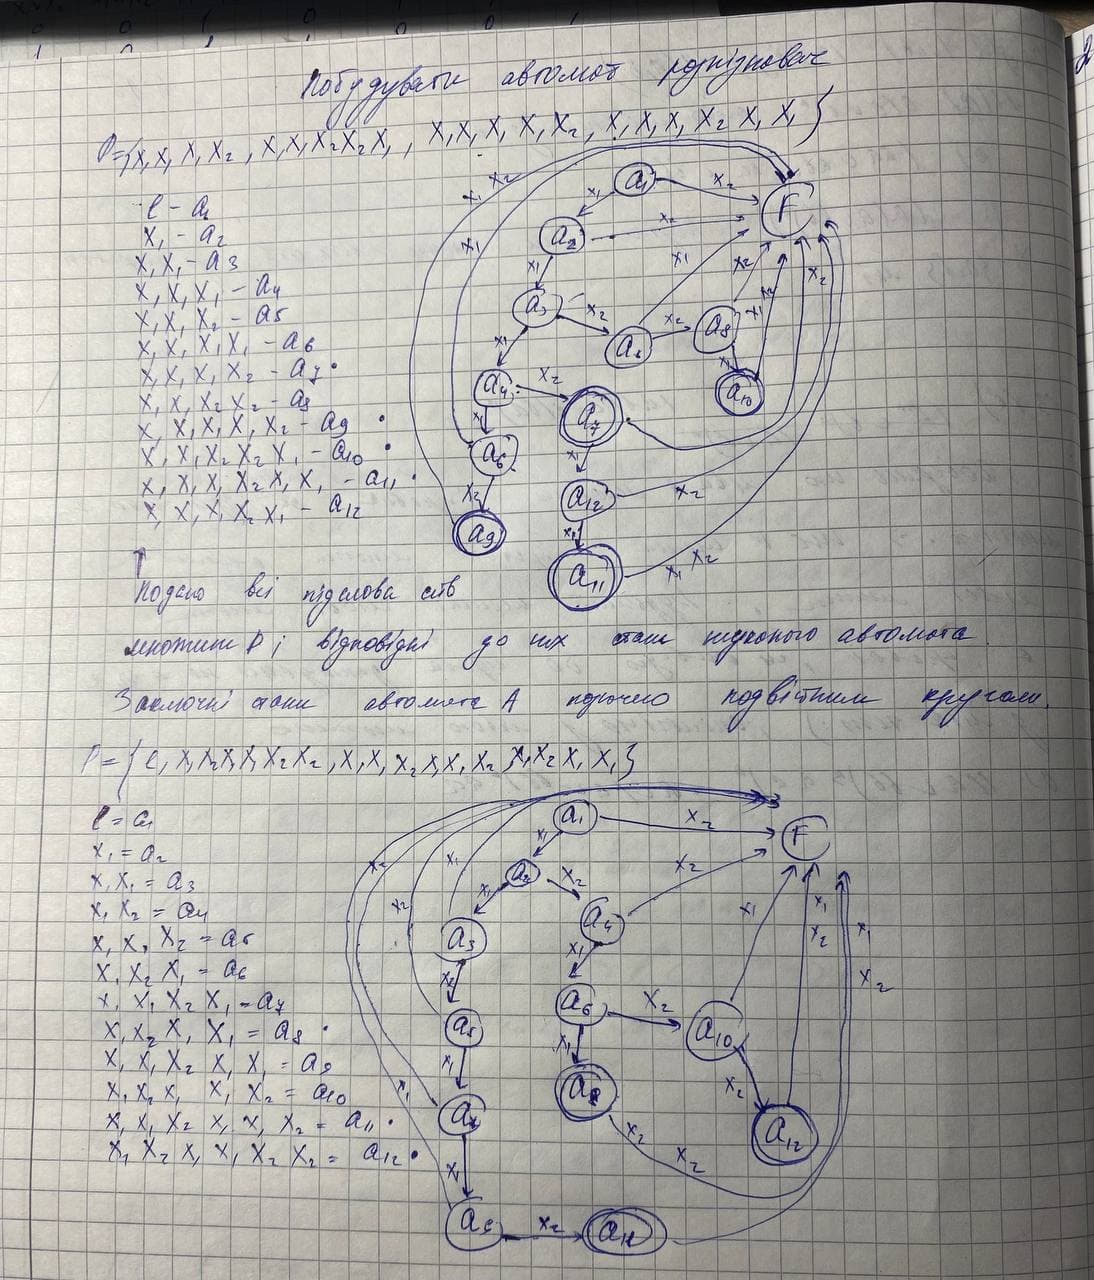 Побудувати автомат розпізнавач
P={x₁x₁x₁x₂, x₁x₁x₂x₂x₁, x₁x₁x₁x₁x₂, x₁x₁x₁x₂x₁x₁}
e - a₁
x₁ - a₂
x₁x₁ - a₃
x₁x₁x₁ - a₄
x₁x₁x₂ - a₅
x₁x₁x₁x₁ - a₆
x₁x₁x₁x₂ - a₇ •
x₁x₁x₂x₂ - a₈
x₁x₁x₁x₁x₂ - a₉ •
x₁x₁x₂x₂x₁ - a₁₀ •
x₁x₁x₁x₂x₁x₁ - a₁₁ •
x₁x₁x₁x₂x₁ - a₁₂
a₁ x₂ F
x₁
a₂ x₂
x₁
a₃ x₂
x₁ x₂ a₈
a₄ x₂ a₇ x₁ a₁₀
x₁
a₆ x₁
x₂ a₁₂ x₂
a₉ x₁
a₁₁ x₁ x₂
↑
Подано всі підслова слів
множини P і відповідні до них стани шуканого автомата.
Заключні стани автомата A подвійним кругом.
P={e, x₁x₂x₁x₁x₂x₂, x₁x₁x₂x₁x₁x₂, x₁x₂x₁x₁}
e = a₁
x₁ = a₂
x₁x₁ = a₃
x₁x₂ = a₄
x₁x₁x₂ = a₅
x₁x₂x₁ = a₆
x₁x₁x₂x₁ - a₇
x₁x₂x₁x₁ = a₈ •
x₁x₁x₂x₁x₁ = a₉
x₁x₂x₁x₁x₂ = a₁₀
x₁x₁x₂x₁x₁x₂ = a₁₁ •
x₁x₂x₁x₁x₂x₂ = a₁₂ •
a₁ x₂ F
x₁
a₂ x₂ x₂
x₁
a₃ a₄
x₂ x₁
a₅ a₆ x₂ a₁₀
x₁ x₁ x₂
a₇ a₁₂
x₁ x₂ x₂
x₂